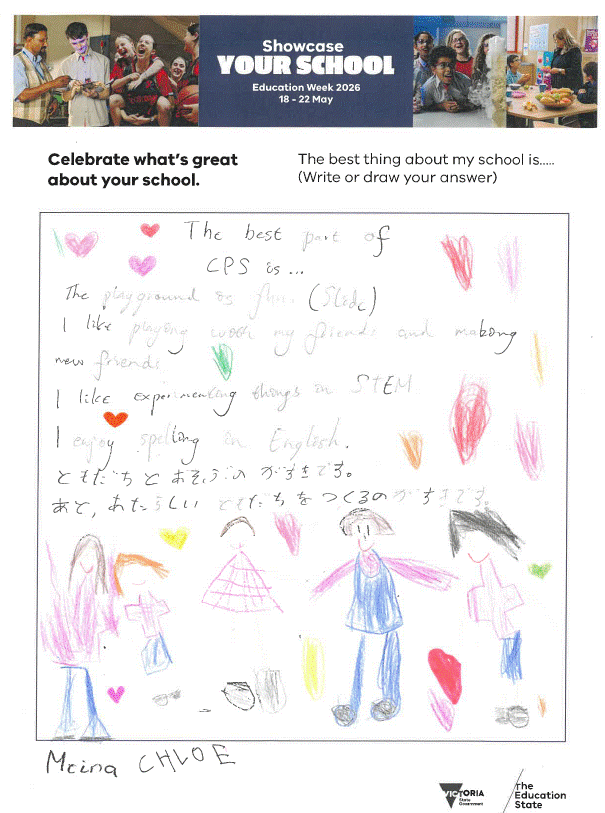 Showcase
YOUR SCHOOL
Education Week 2026
18 - 22 May
Celebrate what's great
about your school.
The best thing about my school is.....
(Write or draw your answer)
The best part of
CPS is...
The playground is fun. (Slide)
I like playing with my friends and making
new friends
I like experimenting things in STEM
I enjoy spelling in English.
ともだちとあそぶのがすきです。
あと、あたらしいともだちをつくるのがすきです。
Meina CHLOE
VICTORIA
State
Government
The
Education
State